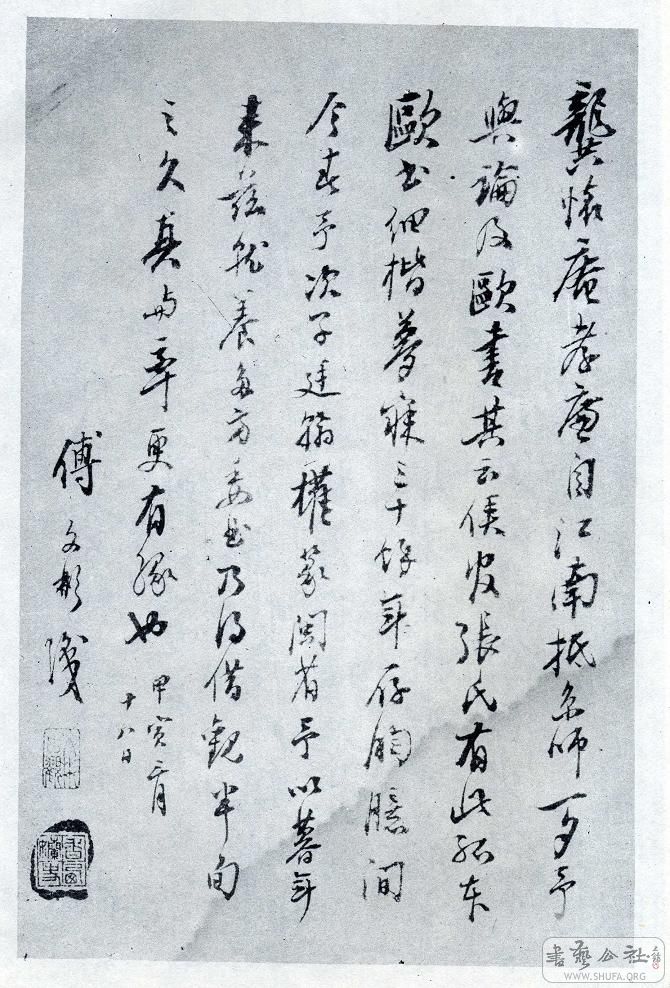 龔懷庵孝廉自江南抵京師一夕予
與論及歐書其云侯官張氏有此孤本
歐書細楷夢寐三十餘年存胸臆間
今春予次子廷翰權篆閩省予以暮年
來茲就養多方乃得借觀半旬
之久真與率更有緣也
甲寅二月
十八日
傅文彬識
書藝公社
WWW.SHUFA.ORG